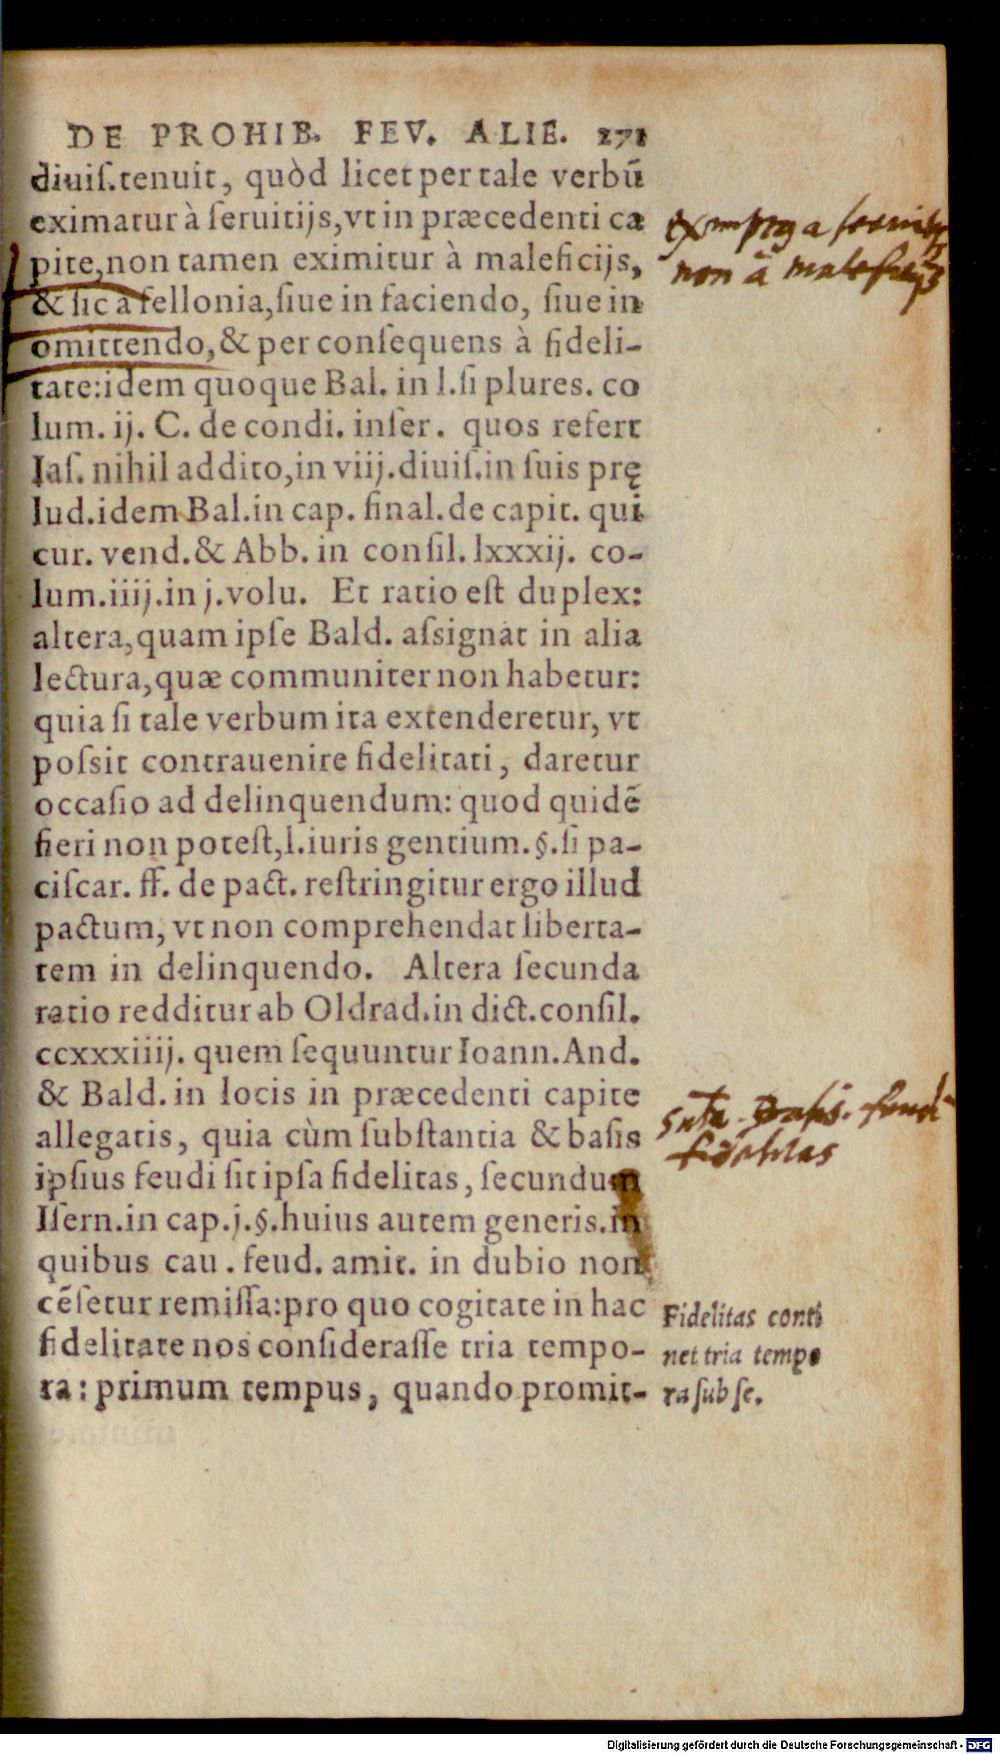 DE PROHIB. FEV. ALIE. 271
diuiſ.tenuit, quòd licet per tale verbū
eximatur à ſeruitijs,vt in præcedenti ca
pite,non tamen eximitur à maleficijs,
& ſic à fellonia,ſiue in faciendo, ſiue in
omittendo,& per conſequens à fideli-
tate:idem quoque Bal. in l.ſi plures. co
lum. ij. C. de condi. inſer. quos refert
Iaſ. nihil addito,in viij.diuiſ.in ſuis prę
lud.idem Bal.in cap. final.de capit. qui
cur. vend.& Abb. in conſil. lxxxij. co-
lum.iiij.in j.volu. Et ratio eſt duplex:
altera,quam ipſe Bald. aſsignat in alia
lectura,quæ communiter non habetur:
quia ſi tale verbum ita extenderetur, vt
poſsit contrauenire fidelitati, daretur
occaſio ad delinquendum: quod quidē
fieri non poteſt,l.iuris gentium.§.ſi pa-
ciſcar. ff. de pact. reſtringitur ergo illud
pactum, vt non comprehendat liberta-
tem in delinquendo. Altera ſecunda
ratio redditur ab Oldrad.in dict.conſil.
ccxxxiiij. quem ſequuntur Ioann.And.
& Bald. in locis in præcedenti capite
allegatis, quia cùm ſubſtantia & baſis
ipſius feudi ſit ipſa fidelitas, ſecundum
Iſern.in cap.j.§.huius autem generis.in
quibus cau. feud. amit. in dubio non
cēſetur remiſſa:pro quo cogitate in hac
fidelitate nos conſideraſſe tria tempo-
ra: primum tempus, quando promit-
a
non à maleficijs
fidelitas
Fidelitas conti
net tria tempo
ra ſub ſe.
Digitalisierung gefördert durch die Deutsche Forschungsgemeinschaft - DFG